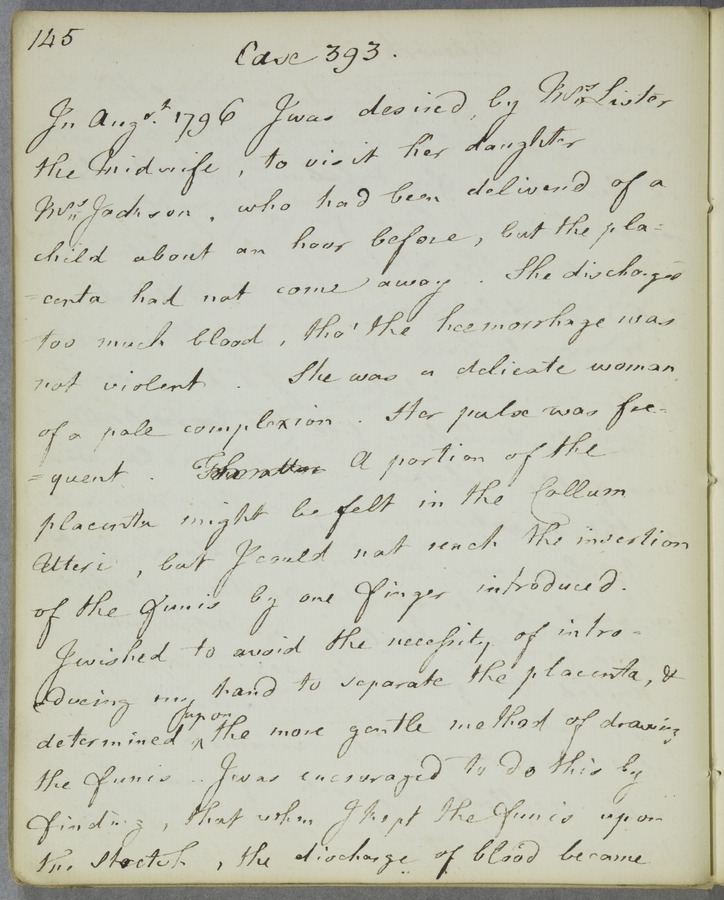 145
Case 393.
In Augst. 1796 I was desired, by Mrs. Lister
the Midwife, to visit her daughter
Mrs. Jackson, who had been deliverd of a
child about an hour before, but the pla=
=centa had not come away. She discharged
too much blood, tho' the hœmorrhage was
not violent. She was a delicate woman
of a pale complexion. Her pulse was fre-
=quent. A portion of the
placenta might be felt in the Collum
Uteri, but I could not reach the insertion
of the funis by one finger introduced.
I wished to avoid the necessity of intro-
-ducing my hand to separate the placenta, &
determined upon the more gentle method of drawing
the funis. I was encouraged to do this by
finding, that when I kept the funis upon
the stretch, the discharge of blood became